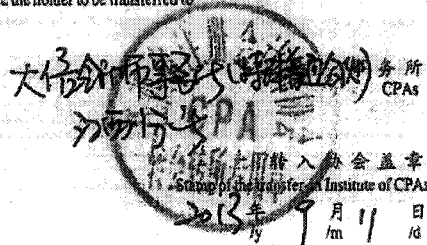 the holder to be transferred to
大信会计师事务所(特殊普通合伙) 务所
CPAs
分所
CPA
转入协会盖章
Stamp of the transfer-in Institute of CPAs
2013年 9月 11日
/y /m /d